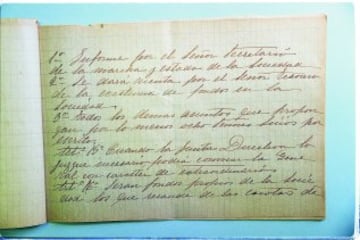 1º Informe por el Señor Secretario
de la marcha y estado de la Sociedad
2º Se dará cuenta por el Señor Tesorero
de la existencia de fondos en la
Sociedad.
3º Todos los demas asuntos que propon
gan por lo menos ocho Señores Sócios por
escrito.
Artº Cuando la Junta Directiva lo
juzgue necesario podrá convocar la Gene
ral con carácter de extraordinaria
Artº Seran fondos propios de la Socie
dad los que resande de las cuotas de